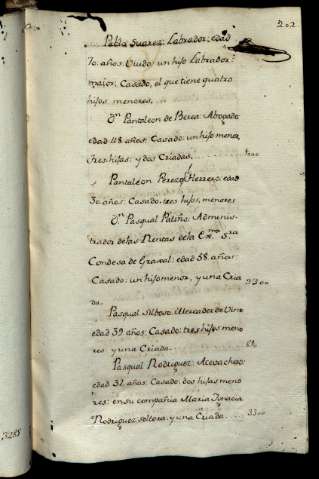 202
Pablo Suarez: Labrador: edad
70 años: Viudo: un hijo Labrador:
maior, Casado, el que tiene quatro
hijos menores,
Dn. Pantaleon de Abogado
edad 48 años: Casado: un hijo menor,
tres hijas: y dos Criadas
Pantaleon Perez Herrero, edad
30 años: Casado: tres hijos, menores
Dn. Pasqual Patiño, Adminis-
trador de las Rentas de la Exma. Sra.
Condesa de Graxal: edad 58 años:
Casado: un hijo menor, y una Cria
da 3300
Pasqual Mercader de Vino
edad 39 años: Casado: tres hijos meno
res y una Criada
Pasqual Rodriguez: Azevachero
edad 32 años: Casado: dos hijas meno
res: en su compañia Maria Ignacia
Rodriguez soltera: y una Criada 3300
3285